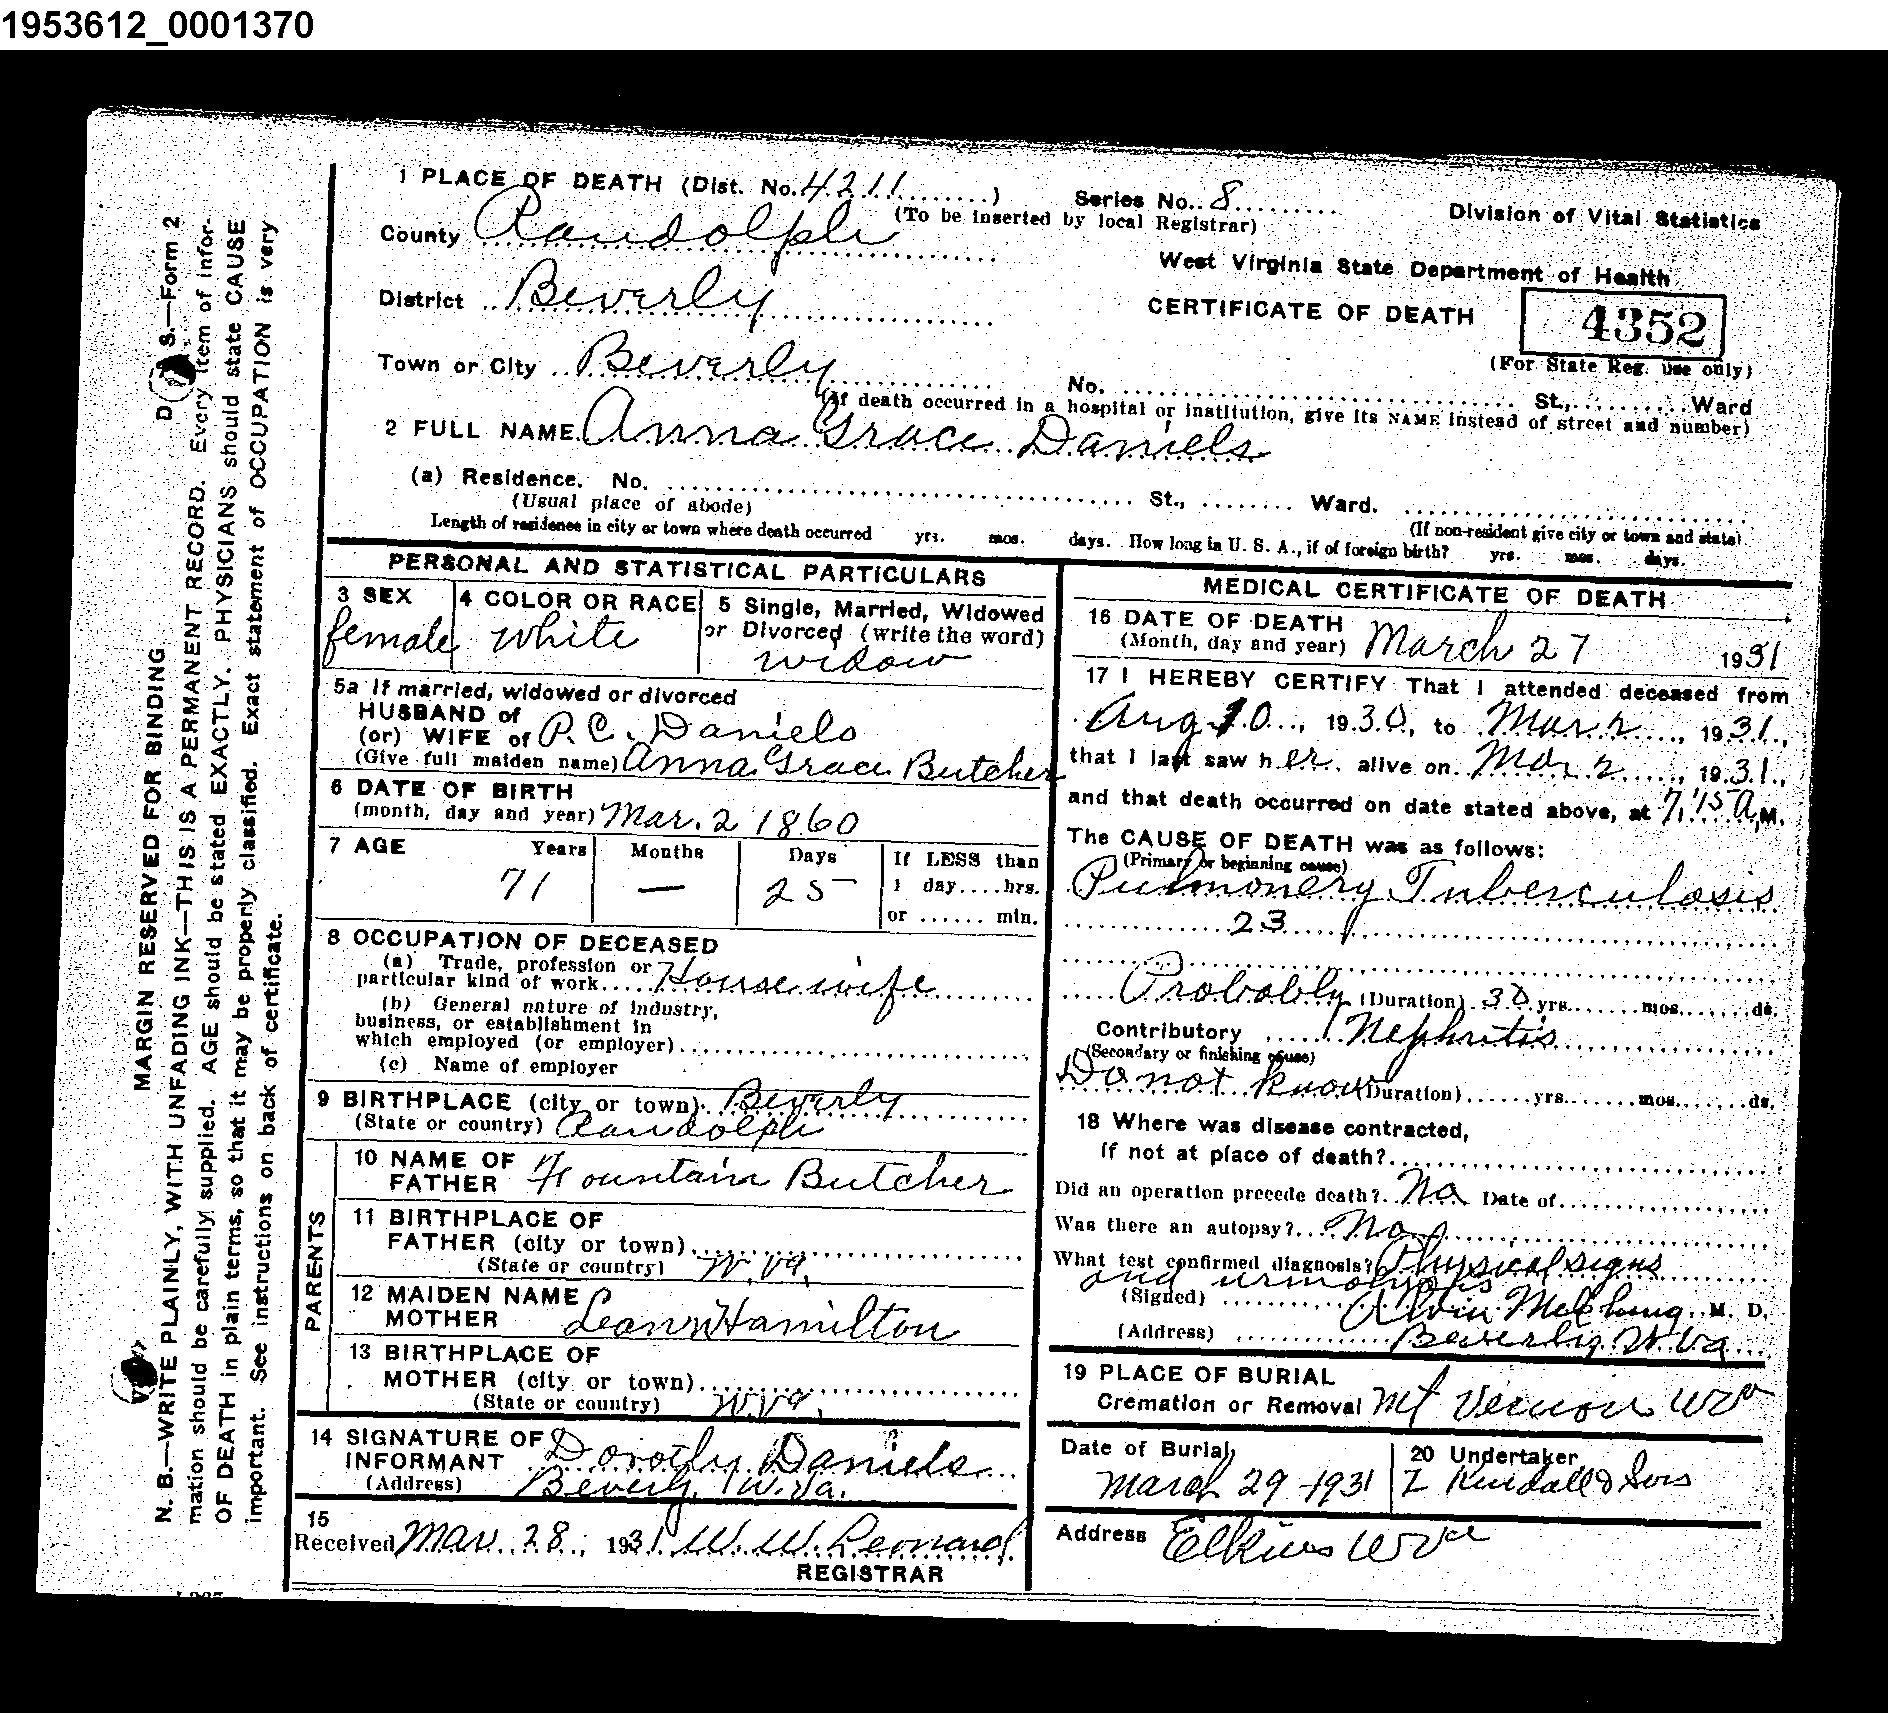 1953612_0001370
1 PLACE OF DEATH (Dist. No. 4211 ) Series No. 8
(To be inserted by local Registrar)
Division of Vital Statistics
County Randolph
West Virginia State Department of Health
District Beverly
CERTIFICATE OF DEATH
4352
(For State Reg. use only)
Town or City Beverly
No. St., Ward
(If death occurred in a hospital or institution, give its NAME instead of street and number)
2 FULL NAME Anna Grace Daniels
(a) Residence. No. St., Ward.
(Usual place of abode) (If non-resident give city or town and state)
Length of residence in city or town where death occurred yrs. mos. days. How long in U. S. A., if of foreign birth? yrs. mos. days.
PERSONAL AND STATISTICAL PARTICULARS
3 SEX
female
4 COLOR OR RACE
White
5 Single, Married, Widowed
or Divorced (write the word)
widow
5a If married, widowed or divorced
HUSBAND of
(or) WIFE of P. C. Daniels
(Give full maiden name) Anna Grace Butcher
6 DATE OF BIRTH
(month, day and year) Mar. 2 1860
7 AGE Years Months Days If LESS than
71 — 25 1 day....hrs.
or ...... min.
8 OCCUPATION OF DECEASED
(a) Trade, profession or
particular kind of work Housewife
(b) General nature of industry,
business, or establishment in
which employed (or employer)
(c) Name of employer
9 BIRTHPLACE (city or town) Beverly
(State or country) Randolph
PARENTS
10 NAME OF
FATHER Fountain Butcher
11 BIRTHPLACE OF
FATHER (city or town)
(State or country) W. Va.
12 MAIDEN NAME
MOTHER Leann Hamilton
13 BIRTHPLACE OF
MOTHER (city or town)
(State or country) W. Va.
14 SIGNATURE OF
INFORMANT Dorothy Daniels
(Address) Beverly, W. Va.
15
Received Mar. 28, 1931 W. W. Leonard
REGISTRAR
MEDICAL CERTIFICATE OF DEATH
16 DATE OF DEATH
(Month, day and year) March 27 1931
17 I HEREBY CERTIFY That I attended deceased from
Aug 10, 1930, to Mar 2, 1931,
that I last saw her alive on Mar 2, 1931,
and that death occurred on date stated above, at 7:15 A.M.
The CAUSE OF DEATH was as follows:
(Primary or beginning cause)
Pulmonery Tuberculosis
23
Probably (Duration) 30 yrs. mos. ds.
Contributory Nephritis
(Secondary or finishing cause)
Do not know (Duration) yrs. mos. ds.
18 Where was disease contracted,
if not at place of death?
Did an operation precede death? No Date of
Was there an autopsy? No
What test confirmed diagnosis? Physical signs
and urinalysis
(Signed) Alvin McClung M. D.
(Address) Beverly, W. Va
19 PLACE OF BURIAL
Cremation or Removal Mt Vernon W Va
Date of Burial
March 29 - 1931
20 Undertaker
Kendall & Sons
Address Elkins W Va
MARGIN RESERVED FOR BINDING
D S.—Form 2
N. B.—WRITE PLAINLY, WITH UNFADING INK—THIS IS A PERMANENT RECORD. Every item of infor-
mation should be carefully supplied. AGE should be stated EXACTLY. PHYSICIANS should state CAUSE
OF DEATH in plain terms, so that it may be properly classified. Exact statement of OCCUPATION is very
important. See instructions on back of certificate.